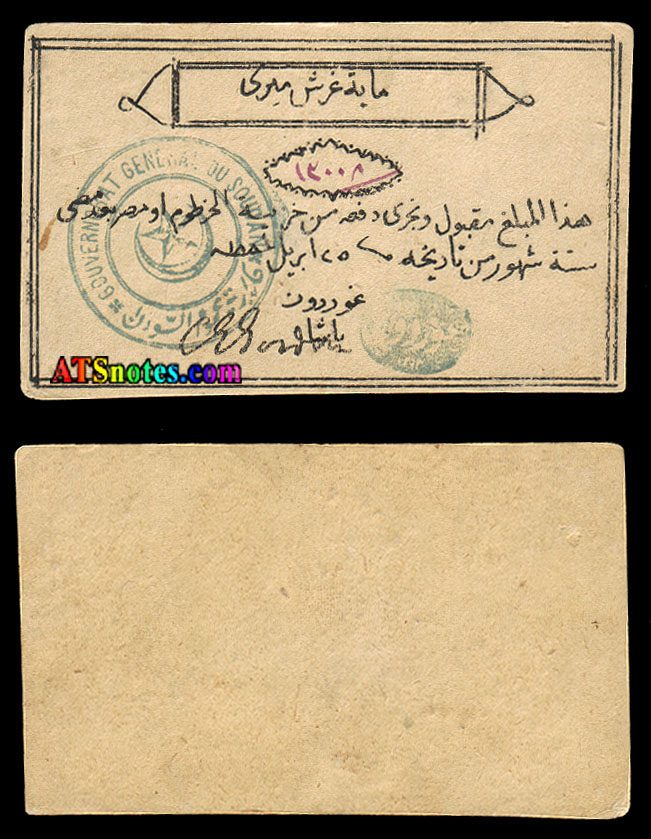 ماية غرش ميري
١٣٠٠٨
هذا المبلغ مقبول وتجرى دفعه من خزينة الخرطوم او مصر بعد مضى
ستة شهور من تاريخه ٢٥ ابريل
غوردون
باشا
GOUVERNORAT GENERAL DU SOUDAN
ATSnotes.com